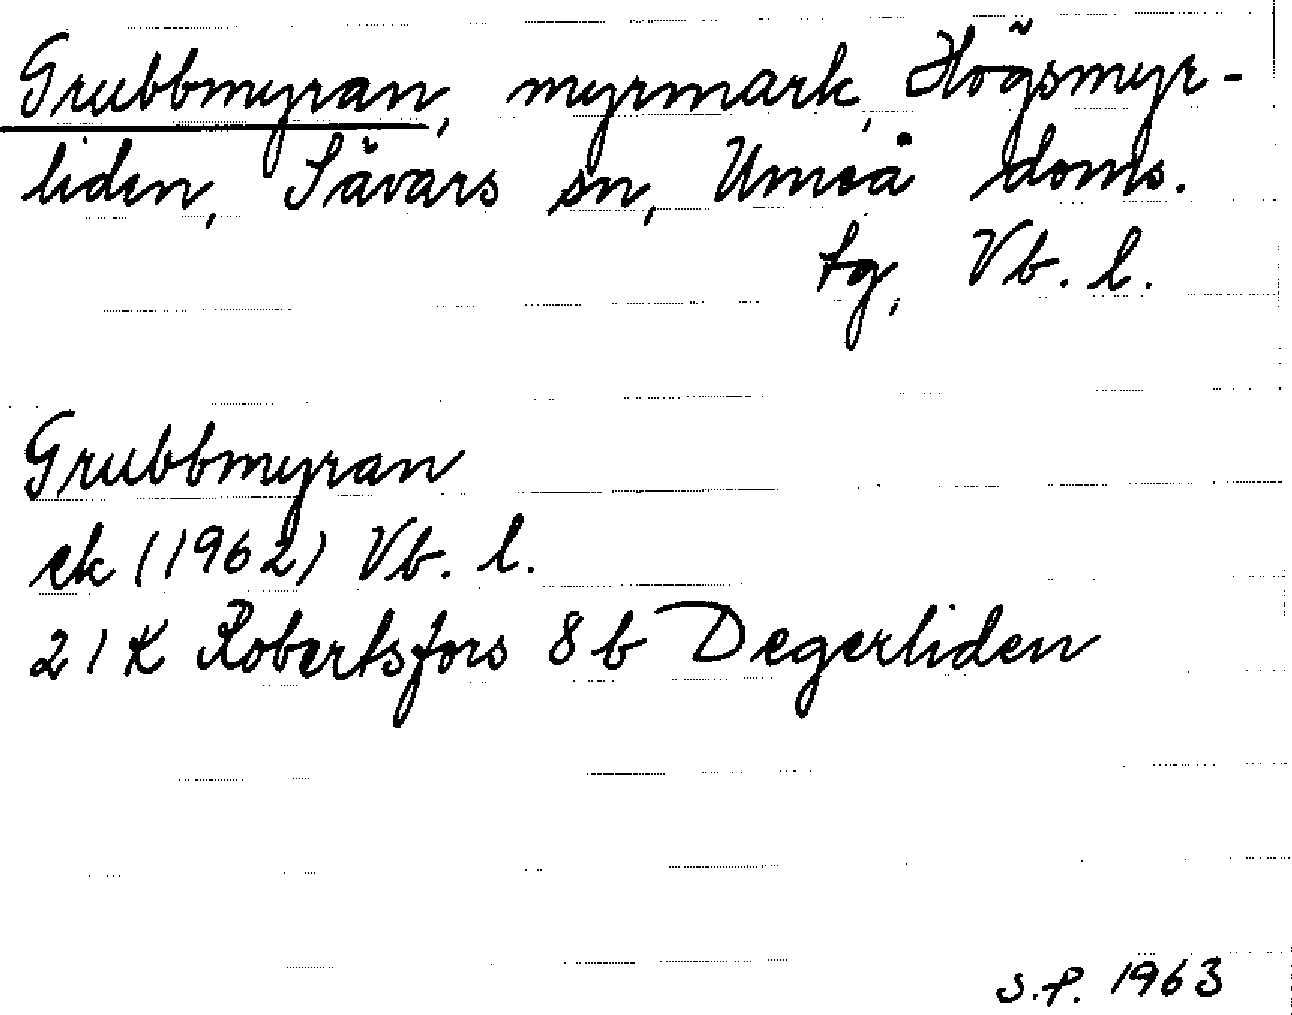 Grubbmyran, myrmark, Högsmyr-
liden, Sävars sn, Umeå doms.
tg, Vb. l.
Grubbmyran
ek (1962) Vb. l.
21 K Robertsfors 8 b Degerliden
S.P. 1963